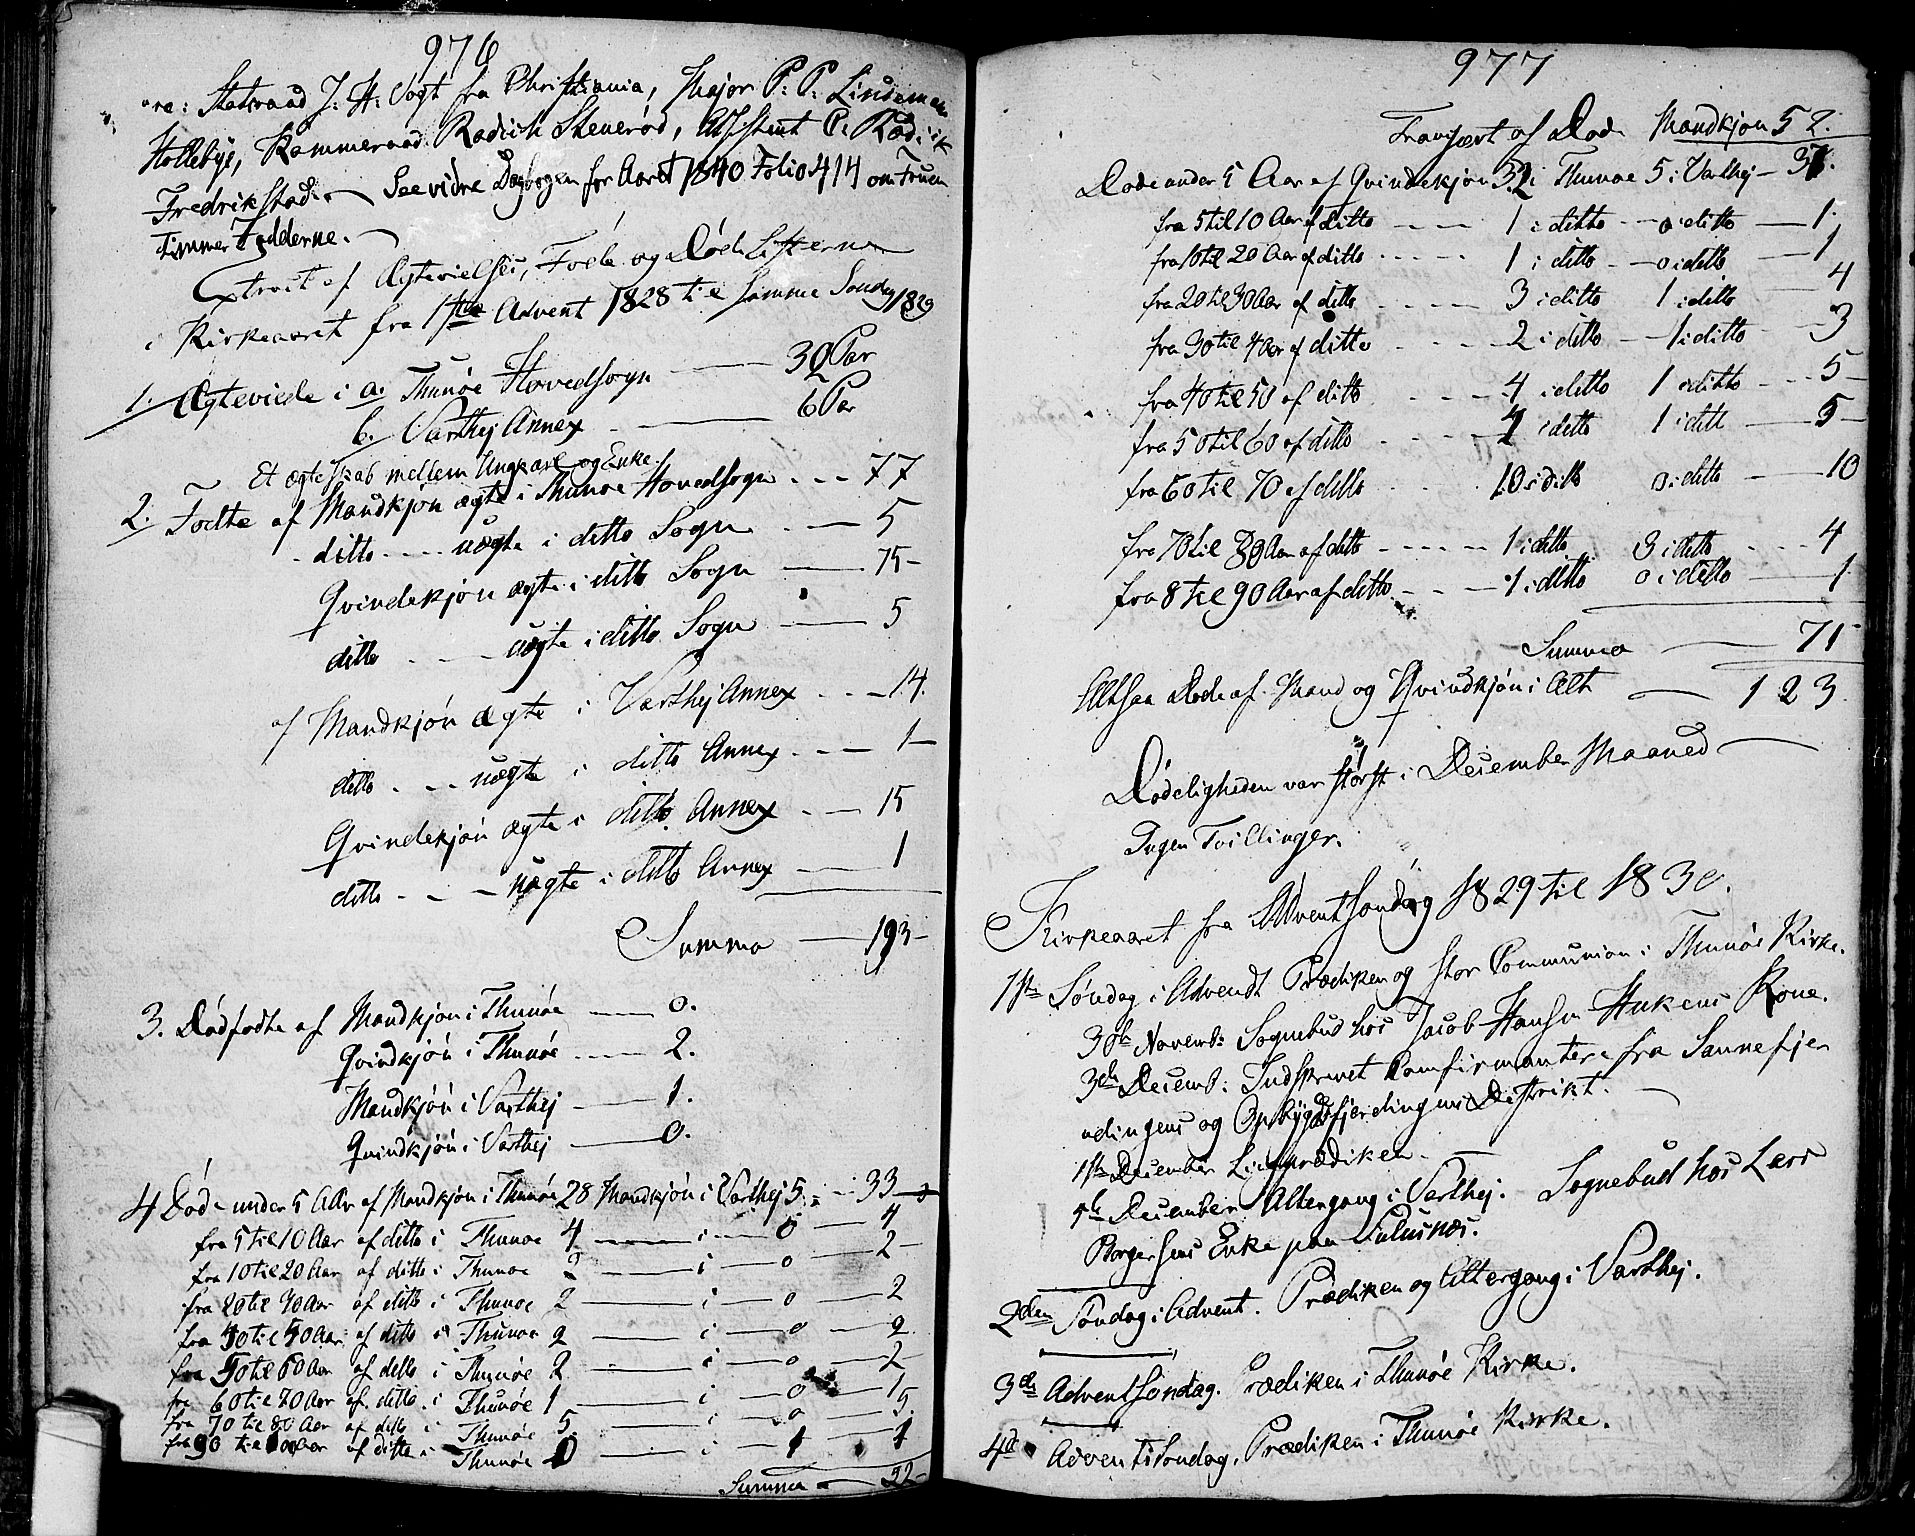 976
Statsraad J: H: Vogt fra Christiania, Major P: P: Lindeman
Hollebye, Kammeraad Radich Stenerød, Assistent C: Radich
Fredrikstad. — See vidre Dagbogen for Aaret 1840 Folio 414 om Fruen
Timmer Fødderne. —
Extract af Ægtevielses, Føde og Døde Listerne
i Kirkeaaret fra 1ste Advent 1828 til samme Søndag 1829
1. Ægteviede i a. Thunøe Hovedsogn —— 39 Par
b. Varthej Annex —— 6 Par
Et ægteskab mellem Ungkarl og Enke.
2. Fødte af Mandkjøn ægte i Thunøe Hovedsogn - - - 77
ditto - - - uægte i ditto Sogn - — 5
Qvindekjøn ægte i ditto Sogn —— 75 -
ditto - - - uægte i ditto Sogn —— 5
af Mandkjøn ægte i Varthej Annex - - - 14.
ditto - - - uægte i ditto Annex - - — 1 —
Qvindekjøn ægte i ditto Annex - - — 15
ditto - - - uægte i ditto Annex —— 1
Summa —— 193 -
3. Dødfødte af Mandkjøn i Thunøe —— 0.
Qvindkjøn i Thunøe —— 2.
Mandkjøn i Varthej —— 1.
Qvindkjøn i Varthej —— 0.
4 Døde under 5 Aar af Mandkjøn i Thunøe 28 Mandkjøn i Varthej 5 - - 33 —
fra 5 til 10 Aar af ditto i Thunøe 4 —— i — 0 — 4
fra 10 til 20 Aar af ditto i Thunøe 2 —— i — 0 — 2 -
fra 20 til 40 Aar af ditto i Thunøe 2 —— i — 0 — 2
fra 40 til 50 Aar af ditto i Thunøe 2 —— i — 0 — 2
fra 50 til 60 Aar af ditto i Thunøe 2 —— i — 0 — 2
fra 60 til 70 Aar af ditto i Thunøe 1 —— i — 0 — 1
fra 70 til 80 Aar af ditto i Thunøe 5 —— i — 0 — 5.
fra 90 til 100 Aar af ditto i Thunøe 0 —— i — 1 — 1
Summa — 52 -
977
Transport af Døde Mandkjøn 52.
Døde under 5 Aar af Qvindekjøn 32 i Thunøe 5 i Varthej — 37.
fra 5 til 10 Aar af ditto - - - - 1 i ditto - - 0 i ditto — 1
fra 10 til 20 Aar af ditto - - - - 1 i ditto - - 0 i ditto — 1
fra 20 til 30 Aar af ditto - - - - 3 i ditto 1 i ditto — 4
fra 30 til 4 Aar af ditto - - - - 2 i ditto — 1 i ditto — 3
fra 40 til 50 af ditto - - - - 4 i ditto 1 i ditto - - - 5 -
fra 50 til 60 af ditto - - - - 4 i ditto 1 i ditto — 5 -
fra 60 til 70 af ditto - - 10 i ditto 0 i ditto — 10
fra 70 til 80 Aar af ditto - - - - 1 i ditto 3 i ditto - - - 4
fra 8 til 90 Aar af ditto - - — 1 i ditto 0 i ditto — 1
Summa —— 71
Altsaa Døde af Mand og Qvindkjøn i Alt — 123
Dødeligheden var størst i December Maaned —
Ingen Tvillinger.
Kirkeaaret fra Adventsøndag 1829 til 1830.
1ste Søndag i Advendt Prædiken og stor Communion i Thunøe Kirke.
30te Novemb: Sognebud hos Jacob Hansen Hukens Kone.
3de Decemb: Indskrevet Comfirmantere fra Sannefjer
udingens og Opbygdsfjerdingens Distrikt. —
1ste December Ligprædiken. —
5te December Altergang i Varthej. Sognebud hos Lars
Borgersens Enke paa
2den Søndag i Advent. Prædiken og Altergang i Varthej.
3de Adventsøndag. Prædiken i Thunøe Kirke.
4de Adventsøndag. Prædiken i Thunøe Kirke.